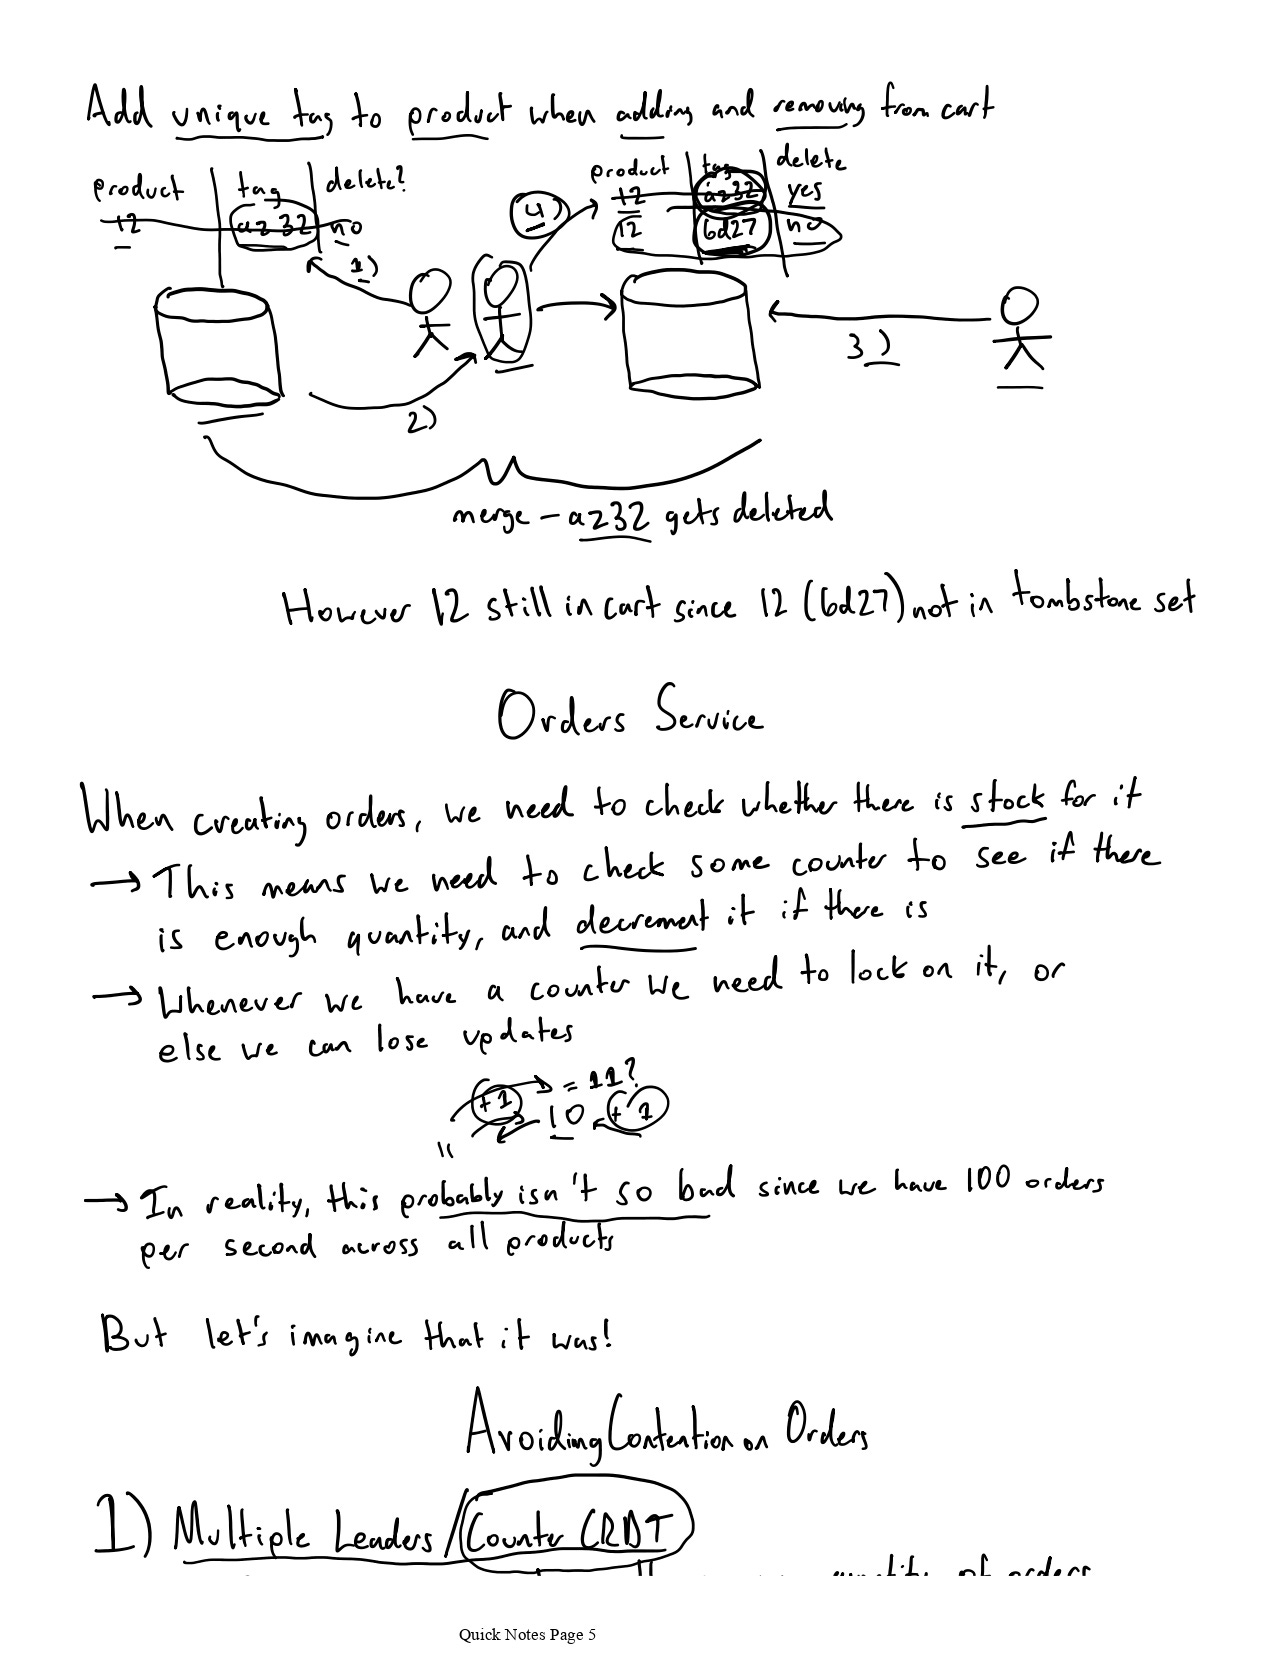 Add unique tag to product when adding and removing from cart
product tag delete?
12 az32 no
product tag delete
12 az32 yes
12 6d27 no
1)
4)
3)
2)
merge - az32 gets deleted
However 12 still in cart since 12 (6d27) not in tombstone set
Orders Service
When creating orders, we need to check whether there is stock for it
→ This means we need to check some counter to see if there
is enough quantity, and decrement it if there is
→ Whenever we have a counter we need to lock on it, or
else we can lose updates
= 11?
+1 10 +1
11
→ In reality, this probably isn't so bad since we have 100 orders
per second across all products
But let's imagine that it was!
Avoiding Contention on Orders
1) Multiple Leaders/Counter CRDT
quantity of orders
Quick Notes Page 5